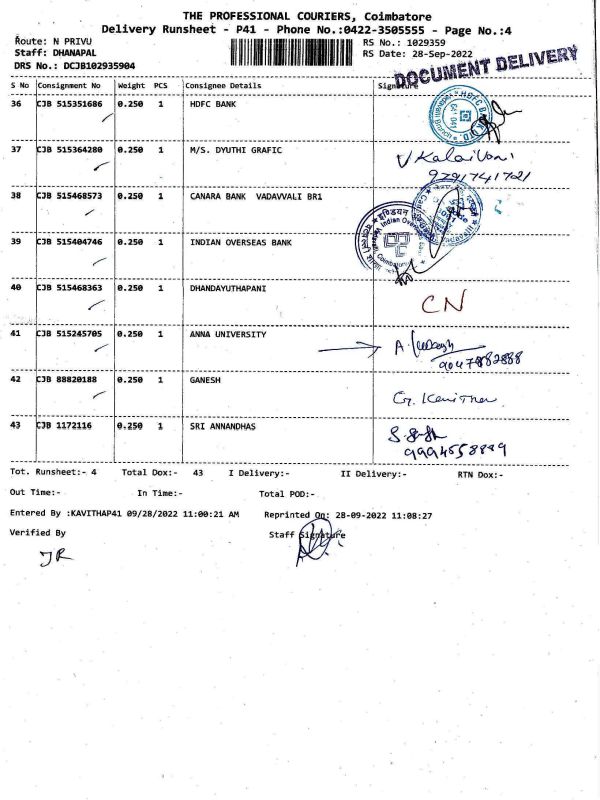 THE PROFESSIONAL COURIERS, Coimbatore
Delivery Runsheet - P41 - Phone No.:0422-3505555 - Page No.:4
Route: N PRIVU
RS No.: 1029359
Staff: DHANAPAL
RS Date: 28-Sep-2022
DRS No.: DCJB102935904
DOCUMENT DELIVERY
S No Consignment No Weight PCS Consignee Details Signature
36 CJB 515351686 0.250 1 HDFC BANK
37 CJB 515364280 0.250 1 M/S. DYUTHI GRAFIC
V Kalaivani
9791741721
38 CJB 515468573 0.250 1 CANARA BANK VADAVVALI BR1
39 CJB 515404746 0.250 1 INDIAN OVERSEAS BANK
40 CJB 515468363 0.250 1 DHANDAYUTHAPANI
CN
41 CJB 515245705 0.250 1 ANNA UNIVERSITY
42 CJB 88820188 0.250 1 GANESH
G. Kavitha
43 CJB 1172116 0.250 1 SRI ANNANDHAS
Tot. Runsheet:- 4 Total Dox:- 43 I Delivery:- II Delivery:- RTN Dox:-
Out Time:- In Time:- Total POD:-
Entered By :KAVITHAP41 09/28/2022 11:00:21 AM Reprinted On: 28-09-2022 11:08:27
Verified By Staff Signature
JR